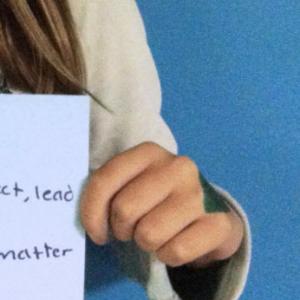 ct, lead
matter